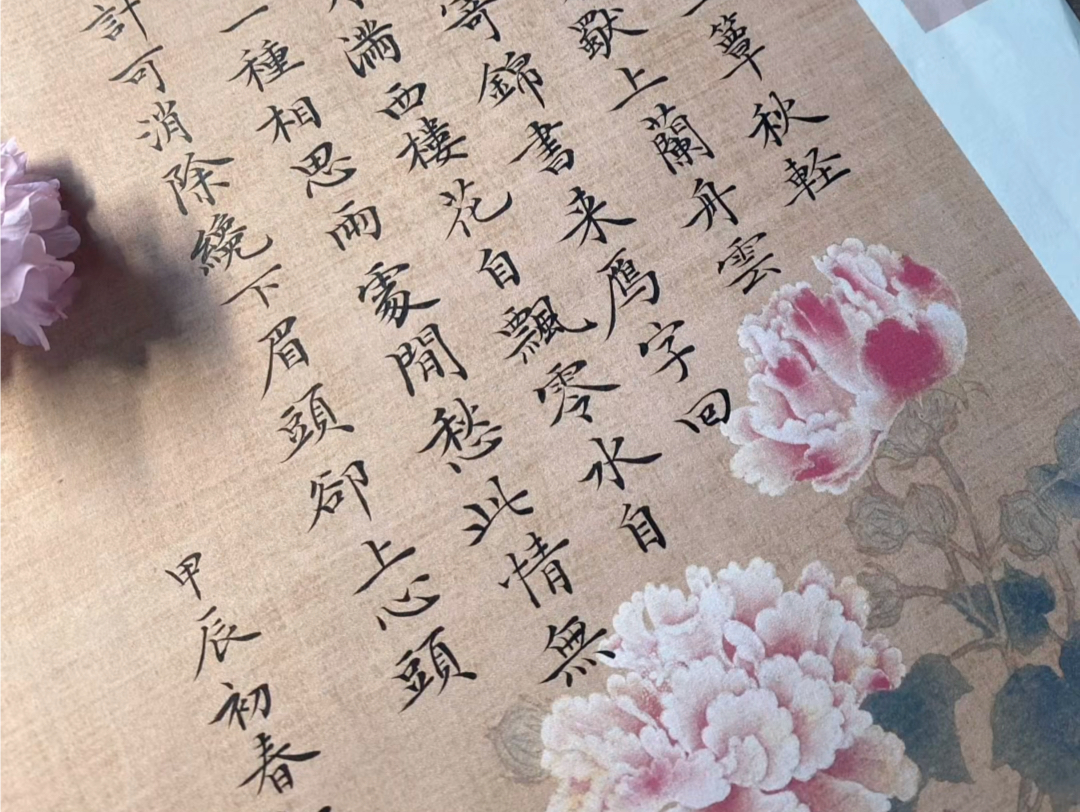 簟秋軽
上蘭舟雲
寄錦書来鴈字回
滿西樓花自飄零水自
一種相思兩處閒愁此情無
計可消除纔下眉頭卻上心頭
甲辰初春